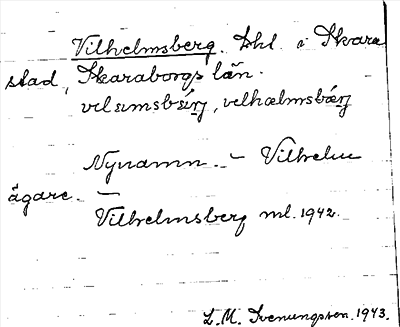 Vilhelmsberg. Lht. i Skara
stad, Skaraborgs län.
vilumsbærj, velhælmsbærj
Nynamn. – Vilhelm
ägare. –
Vilhelmsberg ml. 1942.
L. M. Svenungsson. 1943.